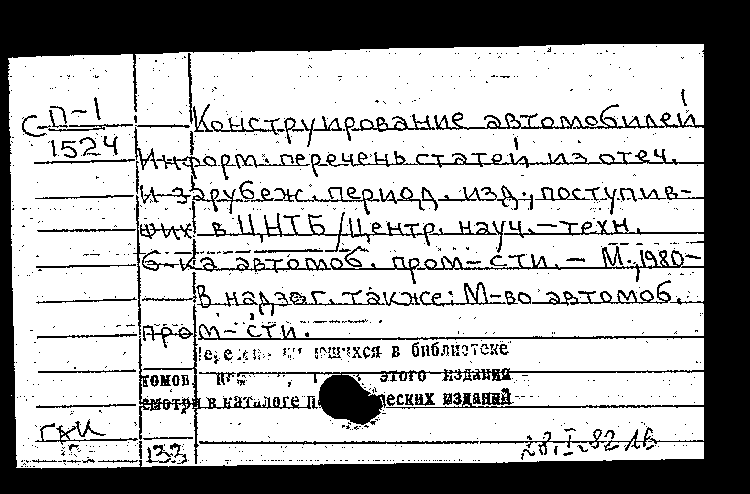 С П-1
1524
Конструирование автомобилей
Информ. перечень статей из отеч.
и зарубеж. период. изд., поступив-
ших в ЦНТБ / Центр. науч.-техн.
б-ка автомоб. пром-сти. - М., 1980-
В надзаг. также: М-во автомоб.
пром-сти.
имеющихся в библиотеке
томов, этого издания
смотри в каталоге периодических изданий
133
28.I.82